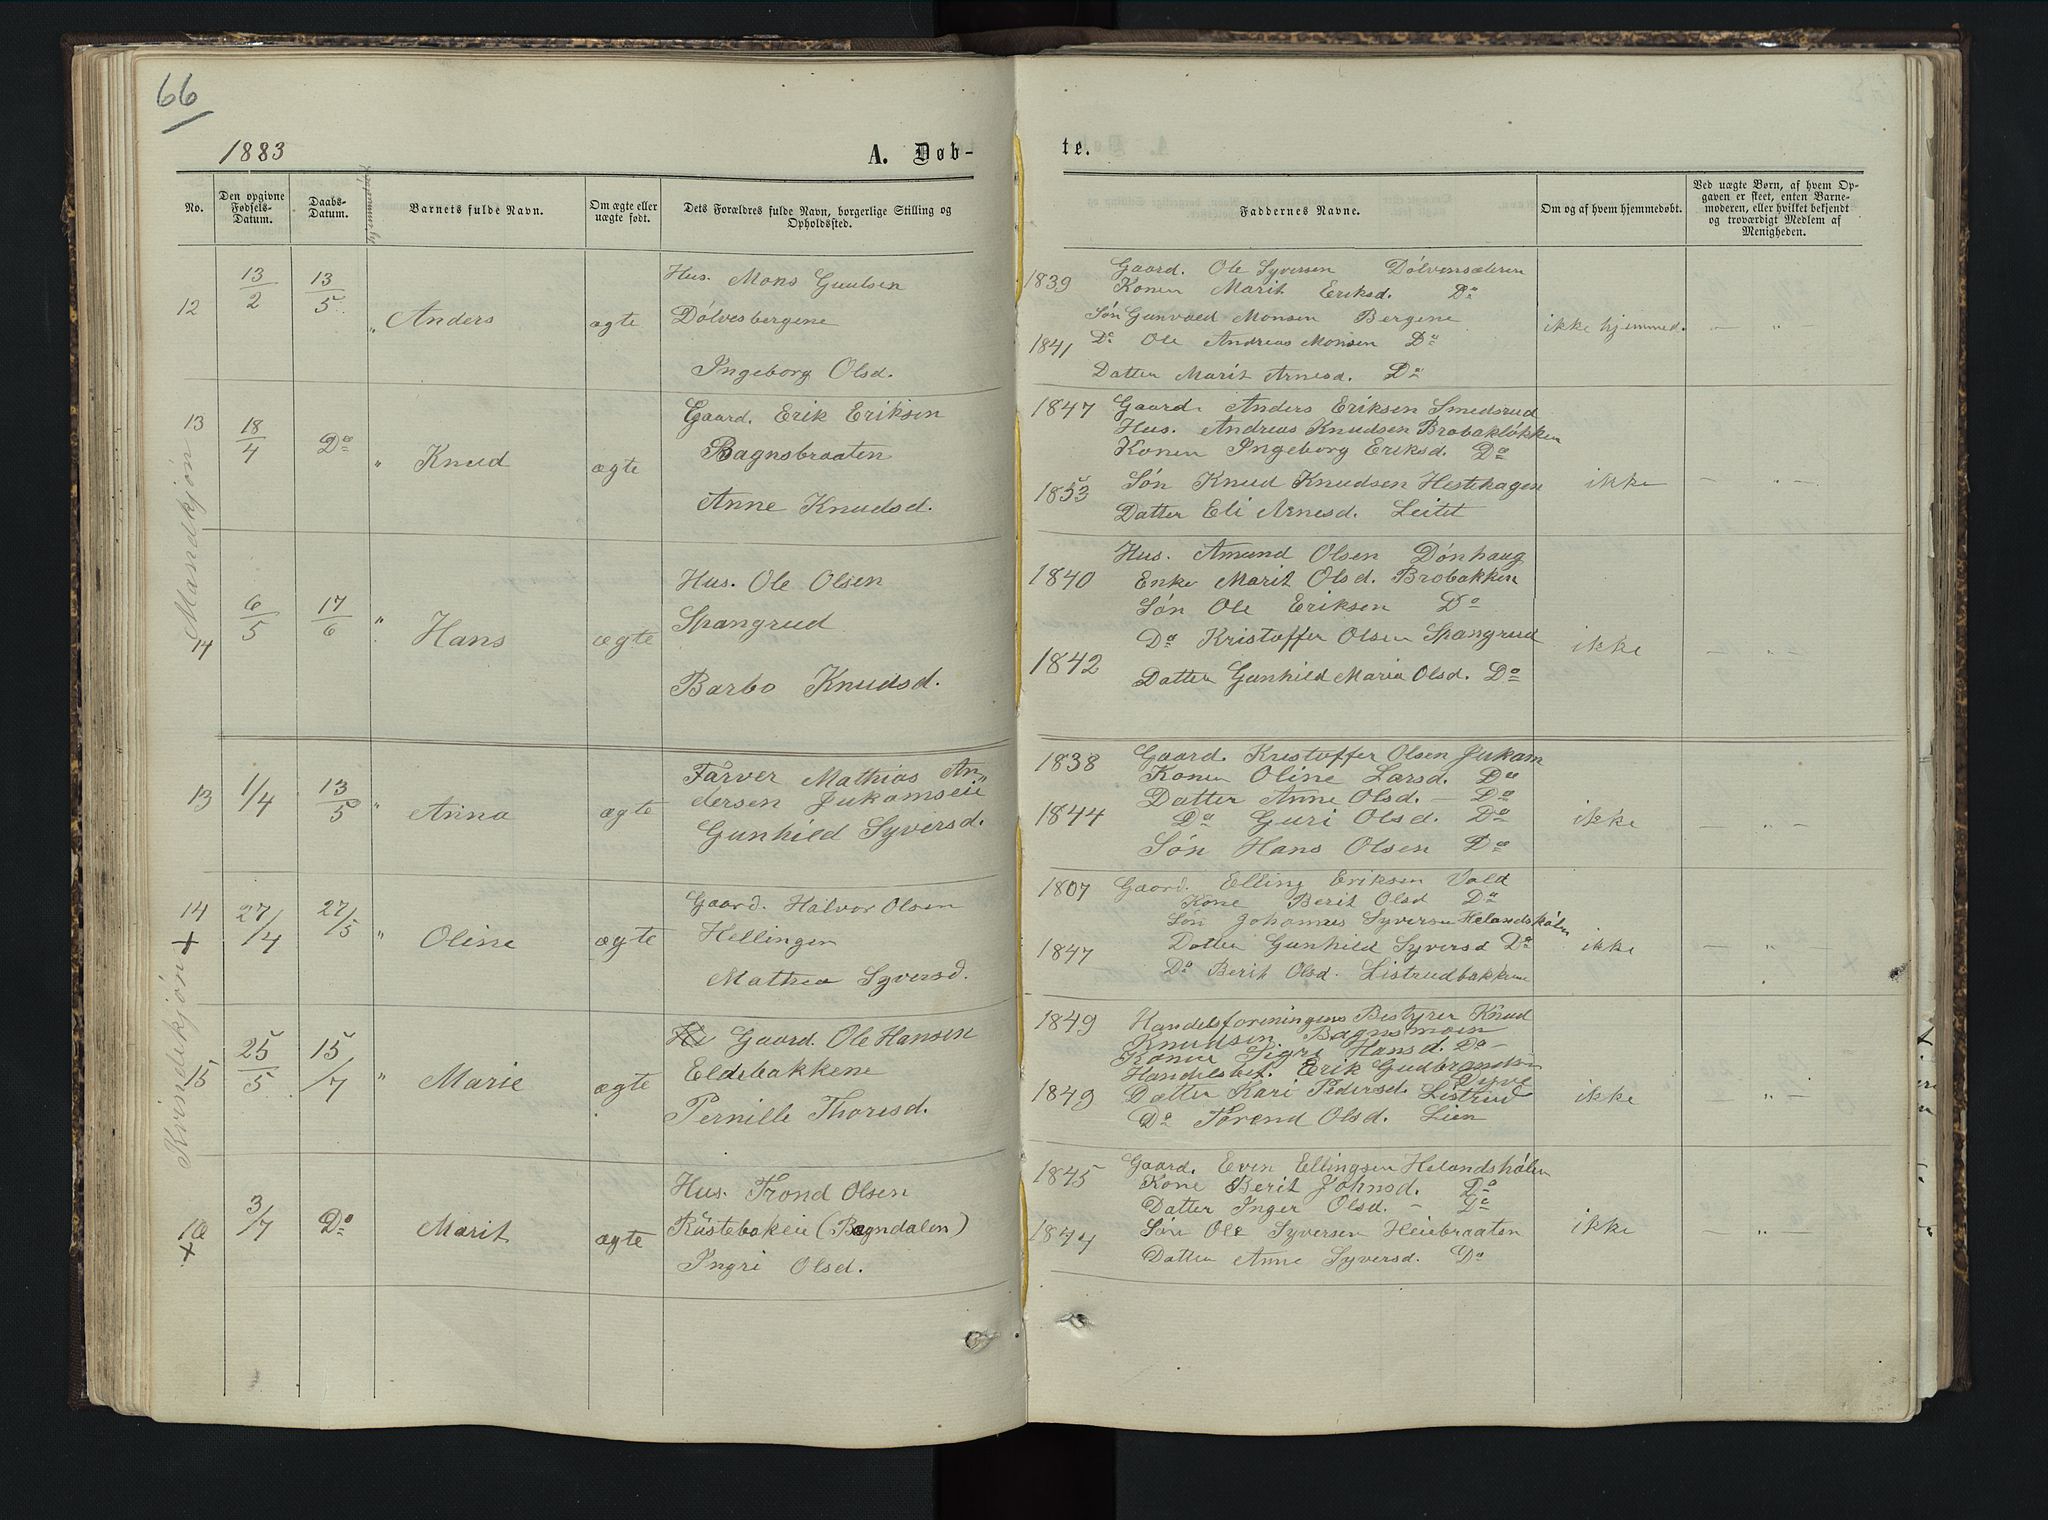 66
1883
A. Døb-
te.
No.
Den opgivne Fødsels-Datum.
Daabs-Datum.
Hjemmedøbt
Barnets fulde Navn.
Om ægte eller uægte født.
Dets Forældres fulde Navn, borgerlige Stilling og Opholdssted.
Faddernes Navne.
Om og af hvem hjemmedøbt.
Ved uægte Børn, af hvem Opgaven er skeet, enten Barnemoderen, eller hvilket bekjendt og troværdigt Medlem af Menigheden.
Mandkjøn
12 13/2 13/5 " Anders ægte
Hus. Mons Guulsen
Dølvesbergene
Ingeborg Olsd.
1839
1841
Gaard. Ole Syversen Dølvensæteren
Konen Marit Eriksd. Do
Søn Gunvald Monsen Bergene
Do Ole Andreas Monsen Do
Datter Marit Arnesd. Do
ikke hjemmed. — " —
13 18/4 Do " Knud ægte
Gaard. Erik Eriksen
Bagnsbraaten
Anne Knudsd.
1847
1853
Gaard. Anders Eriksen Smedsrud
Hus. Andreas Knudsen Brobakløkken
Konen Ingeborg Eriksd. Do
Søn Knud Knudsen Hestehagen
Datter Eli Arnesd. Leitet
ikke — " —
14 6/5 17/6 " Hans ægte
Hus. Ole Olsen
Spangrud
Barbo Knudsd.
1840
1842
Hus. Amund Olsen Dønhaug
Enke Marit Olsd. Brobakken
Søn Ole Eriksen Do
Do Kristoffer Olsen Spangrud
Datter Gunhild Maria Olsd. Do
ikke — " —
Kvindekjøn
13 1/4 13/5 " Anna ægte
Farver Mathias An-
dersen Jukamseie
Gunhild Syversd.
1838
1844
Gaard. Kristoffer Olsen Jukam
Konen Oline Larsd. Do
Datter Anne Olsd. — Do
Do Guri Olsd. Do
Søn Hans Olsen Do
ikke — " —
14 + 27/4 27/5 " Oline ægte
Gaard. Halvor Olsen
Hellingen
Mathea Syversd.
1807
1847
Gaard. Elling Eriksen Vold
Kone Berit Olsd Do
Søn Johannes Syversen Helandshølen
Datter Gunhild Syversd Do
Do Berit Olsd. Listrudbakkene
ikke — " —
15 25/5 15/7 " Marie ægte
Gaard. Ole Hansen
Eldebakkene
Pernille Thoresd.
1849
1849
Handelsforeningens Bestyrer Knud
Knudsen Bagnsmoen
Konen Sigri Hansd. Do —
Handelsbet. Erik Gudbrandsen
Dyve
Datter Kari Pedersd. Listrud
Do Torend Olsd. Lien
ikke — " —
16 + 3/7 Do Marit ægte
Hus. Trond Olsen
Rustebakeie (Bagndalen)
Ingri Olsd.
1845
1847
Gaard. Even Ellingsen Helandshølen
Kone Berit Johnsd. Do
Datter Inger Olsd. — Do
Søn Ole Syversen Heiebraaten
Datter Anne Syversd. Do
ikke — " —